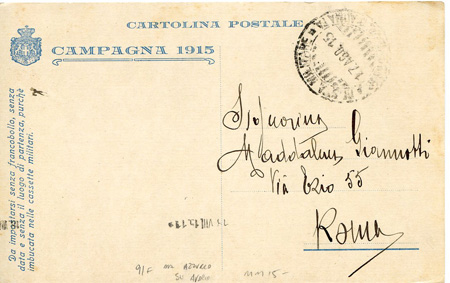 CARTOLINA POSTALE
CAMPAGNA 1915
17 AGO. 15
Da impostarsi senza francobollo, senza
data e senza il luogo di partenza, purchè
imbucata nelle cassette militari.
Signorina
Maddalena Giannotti
Via Ezio 55
Roma